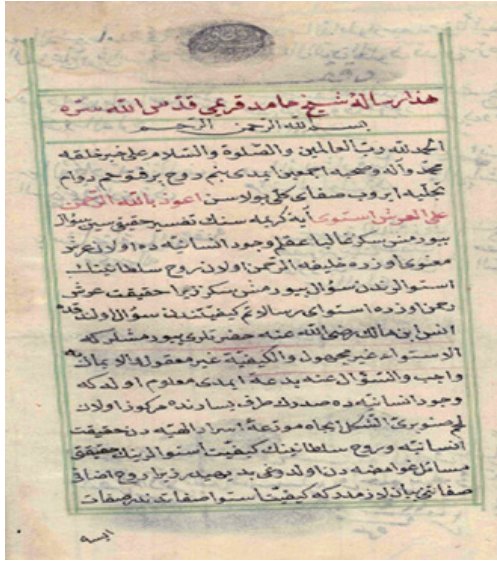 هذا رسالهٔ شيخ حامد قريمی قدّس الله سرّه
بسم الله الرّحمن الرّحيم
الحمد لله ربّ العالمين والصّلوة والسّلام علی خير خلقه
محمّد وآله وصحبه اجمعين ايمدی بنم روح پر فتوحم دوام
تجلّيه ايروب صفای کلّی بولاسن اعوذ بالله الرّحمن
علی العرش استوی آية کريمه سنك تفسير حقيقی سين سؤال
بيورمش سکز غالبا عظم وجود انسانيّه ده اولان عرش
معنوی اوزره خليفة الرّحمن اولان روح سلطانينك
استوالرندن سؤال بيورمش سکز زيرا حقيقت عرش
رحمن اوزره استوای رسالاتم کيفيّتندن سؤال اولند
انس ابن مالك رضی الله عنه حضرتلری بيورمشلر که
الاستواء غير مجهول والکيفيّة غير معقولة والايمان به
واجب والسّؤال عنه بدعة ايمدی معلوم اوله که
وجود انسانيّه ده صدرك طرف يسارنده مرکوز اولان
لحم صنوبریّ الشّکل ايچاه موزعهٔ اسرار الهيّه دن حقيقت
انسانيّه وروح سلطانينك کيفيّت استوالرينك حقيقتی
مسائل غوامضه دن اولدوغی بديهيدر زيرا روح اضافی
صفاتی بيان لازمدر که کيفيّت استوا صفاتندن صفات
ايسه